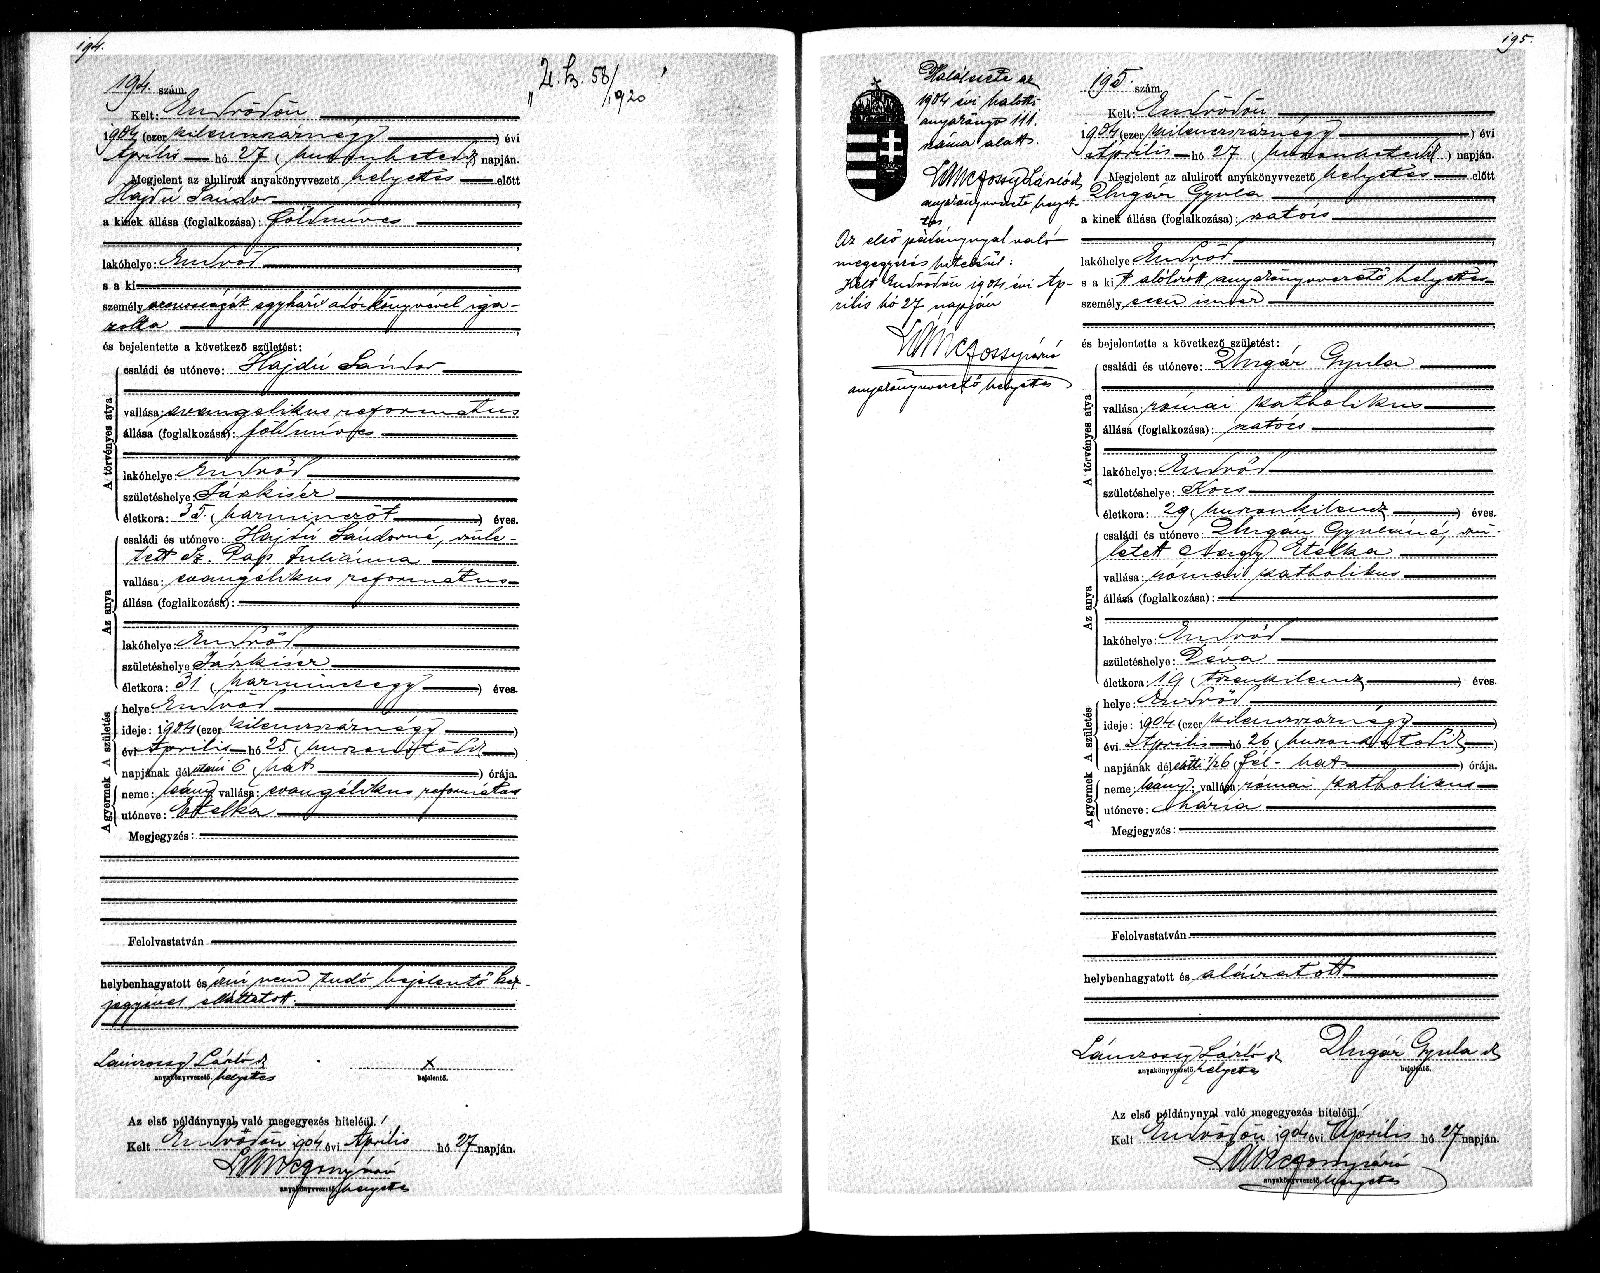 194.
194. szám.
"2. h. 58/1920
Kelt: Endrődön
1904 (ezer kilenczszáznégy ) évi
Április hó 27 (huszonhetedik) napján.
Megjelent az alulirott anyakönyvvezető helyettes előtt
Hajdú Sándor
a kinek állása (foglalkozása): földmíves
lakóhelye: Endrőd
s a ki
személyazonosságát egyházi adókönyvével iga-
zolta
és bejelentette a következő születést:
A törvényes atya
családi és utóneve: Hajdú Sándor
vallása: evangelikus református
állása (foglalkozása): földmíves
lakóhelye: Endrőd
születéshelye: Tárkisér
életkora: 35. (harminczöt ) éves.
Az anya
családi és utóneve: Hajdú Sándorné, szüle-
tett Sz. Pap Juliánna
vallása: evangélikus református
állása (foglalkozása):
lakóhelye: Endrőd
születéshelye Tárkisér
életkora: 31 (harminczegy ) éves.
A gyermek A születés
helye: Endrőd
ideje: 1904 (ezer kilenczszáznégy )
évi Április hó 25 (huszonötödik )
napjának délutáni 6 (hat ) órája.
neme: leány; vallása: evangélikus református
utóneve: Etelka
Megjegyzés:
Felolvastatván
helybenhagyatott és írni nem tudó bejelentő kéz-
jegyével elláttatott.
Lánczossy László k
anyakönyvvezető. helyettes
x
bejelentő.
Az első példánynyal való megegyezés hiteléül!
Kelt Endrődön 1904 évi Április hó 27 napján.
anyakönyvvezető. helyettes
195.
Haláleste az
1904 évi halotti
anyakönyv 111.
száma alatt.
Lánczossy László k
anyakönyvvezető helyet-
tes
Az első példánynyal való
megegyezés hiteléül:
Kelt Endrődön 1904 évi Áp-
rilis hó 27 napján
anyakönyvvezető helyettes
195 szám.
Kelt: Endrődön
1904 (ezer kilenczszáznégy ) évi
Április hó 27 (huszonhetedik ) napján.
Megjelent az alulirott anyakönyvvezető helyettes előtt
Ungár Gyula
a kinek állása (foglalkozása): szatócs
lakóhelye: Endrőd
s a kit alólirott anyakönyvvezető helyettes
személyesen ismer
és bejelentette a következő születést:
A törvényes atya
családi és utóneve: Ungár Gyula
vallása: római katholikus
állása (foglalkozása): szatócs
lakóhelye: Endrőd
születéshelye: Kocs
életkora: 29 (huszonkilencz ) éves.
Az anya
családi és utóneve: Ungár Gyuláné, szü-
letett Nagy Etelka
vallása: római katholikus
állása (foglalkozása):
lakóhelye: Endrőd
születéshelye: Déva
életkora: 19 (tizenkilencz ) éves.
A gyermek A születés
helye: Endrőd
ideje: 1904 (ezer kilenczszáznégy )
évi Április hó 26 (huszonhatodik )
napjának délelőtti 1/2 6 (fél-hat ) órája.
neme: leány; vallása: római katholikus
utóneve: Mária
Megjegyzés:
Felolvastatván
helybenhagyatott és aláiratott
Lánczossy László k
anyakönyvvezető. helyettes
Ungár Gyula k
bejelentő.
Az első példánynyal való megegyezés hiteléül!
Kelt Endrődön 1904 évi Április hó 27 napján.
anyakönyvvezető. helyettes